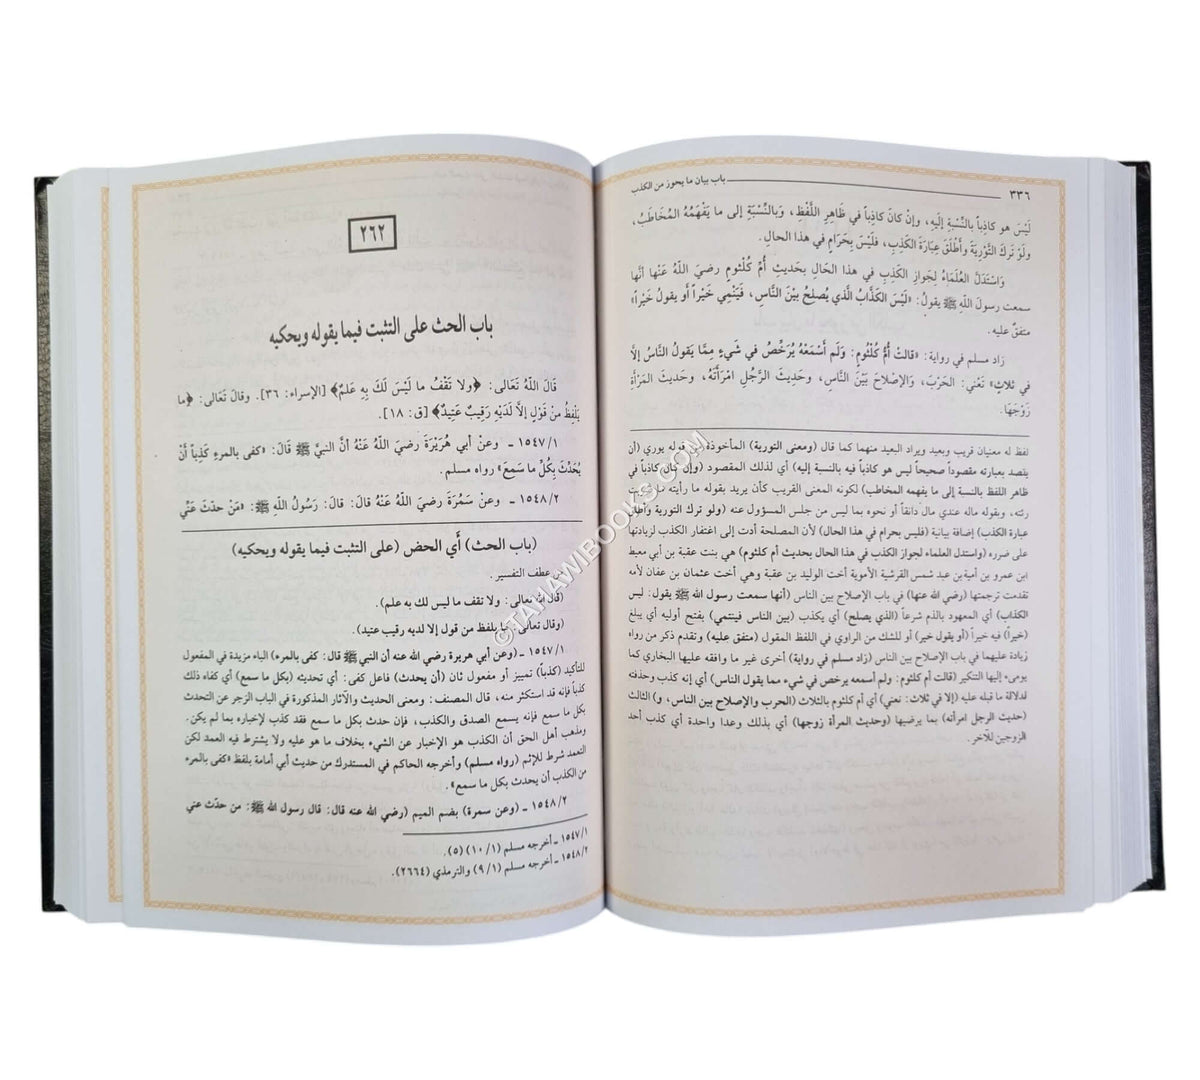 ٣٣٦ باب بيان ما يجوز من الكذب
لَيْسَ هو كاذِباً بالنِّسْبةِ إلَيْهِ، وإنْ كانَ كاذِباً في ظَاهِرِ اللَّفْظِ، وَبالنِّسْبَةِ إلى ما يَفْهَمُهُ المُخَاطَبُ،
ولَوْ تَرَكَ التَّوْرِيَةَ وأَطْلَقَ عِبارَةَ الكَذِبِ، فلَيْسَ بِحَرَامٍ في هذا الحالِ.
وَاسْتَدَلَّ العُلَمَاءُ لِجَوازِ الكَذِبِ في هذا الحَالِ بحَديثِ أُمِّ كُلْثومٍ رضيَ اللَّهُ عَنْها أنَّها
سمعت رسولَ اللَّهِ ﷺ يقولُ: «لَيْسَ الكَذَّابُ الَّذي يُصلِحُ بيْنَ النَّاسِ، فَيَنْمِي خَيْراً أو يقولُ خَيْراً»
متفقٌ عليه.
زاد مسلم في رواية: «قالتْ أمُّ كُلْثُومٍ: وَلَم أسْمَعْهُ يُرَخِّصُ في شَيءٍ مِمَّا يَقولُ النَّاسُ إلَّا
في ثلاثٍ» تَعْني: الحَرْبَ، وَالإصْلاحَ بَيْنَ النَّاسِ، وحَدِيثَ الرَّجُلِ امْرَأتَهُ، وحَديثَ المَرْأةِ
زَوْجَهَا.
لفظ له معنيان قريب وبعيد ويراد البعيد منهما كما قال (ومعنى التورية) المأخوذة قوله يوري (أن
يقصد بعبارته مقصوداً صحيحاً ليس هو كاذباً فيه بالنسبة إليه) أي لذلك المقصود (وإن كان كاذباً في
ظاهر اللفظ بالنسبة إلى ما يفهمه المخاطب) لكونه المعنى القريب كأن يريد بقوله ما رأيته ما ضربت
رئته، وبقوله ماله عندي مال دانقاً أو نحوه بما ليس من جلس المسؤول عنه (ولو ترك التورية وأطلق
عبارة الكذب) إضافة بيانية (فليس بحرام في هذا الحال) لأن المصلحة أدت إلى اغتفار الكذب لزيادتها
على ضرره (واستدل العلماء لجواز الكذب في هذا الحال بحديث أم كلثوم) هي بنت عقبة بن أبي معيط
ابن عمرو بن أمية بن عبد شمس القرشية الأموية أخت الوليد بن عقبة وهي أخت عثمان بن عفان لأمه
تقدمت ترجمتها (رضي الله عنها) في باب الإصلاح بين الناس (أنها سمعت رسول الله ﷺ يقول: ليس
الكذاب) أي المعهود بالذم شرعاً (الذي يصلح) أي يكذب (بين الناس فينتمي) بفتح أوليه أي يبلغ
(خيراً) فيه خيراً (أو يقول خير) أو للشك من الراوي في اللفظ المقول (متفق عليه) وتقدم ذكر من رواه
زيادة عليهما في باب الإصلاح بين الناس (زاد مسلم في رواية) أخرى غير ما وافقه عليها البخاري كما
يومىء إليها التنكير (قالت أم كلثوم: ولم أسمعه يرخص في شيء مما يقول الناس) أي إنه كذب وحذفته
لدلالة ما قبله عليه (إلا في ثلاث: تعني) أي أم كلثوم بالثلاث (الحرب والإصلاح بين الناس، و) الثالث
(حديث الرجل امرأته) بما يرضيها (وحديث المرأة زوجها) أي بذلك وعدا واحدة أي كذب أحد
الزوجين للآخر.
٢٦٢
باب الحث على التثبت فيما يقوله ويحكيه
قَالَ اللَّهُ تَعَالى: ﴿ولا تَقْفُ ما لَيْسَ لكَ بِهِ عَلمٌ﴾ [الإسراء: ٣٦]. وقالَ تَعَالى: ﴿ما
يَلْفِظُ منْ قَوْلٍ إلاَّ لَدَيْهِ رَقِيبٌ عَتِيدٌ﴾ [ق: ١٨].
١/١٥٤٧ ـ وعنْ أبي هُرَيْرَةَ رضيَ اللَّهُ عَنْهُ أنَّ النبيَّ ﷺ قَالَ: «كفى بالمرءِ كَذِباً أنْ
يُحَدِّثَ بكُلِّ ما سَمِعَ» رواه مسلم.
٢/١٥٤٨ ـ وعنْ سَمُرَةَ رضيَ اللَّهُ عَنْهُ قالَ: قالَ: رَسُولُ اللَّهِ ﷺ: «مَنْ حدَّثَ عَنِّي
(باب الحث) أي الحض (على التثبت فيما يقوله ويحكيه)
عطف التفسير.
(قال الله تعالى: ولا تقف ما ليس لك به علم).
(وقال تعالى: ما يلفظ من قول إلا لديه رقيب عتيد).
١/١٥٤٧ ـ (وعن أبي هريرة رضي الله عنه أن النبي ﷺ قال: كفى بالمرء) الباء مزيدة في المفعول
للتأكيد (كذباً) تمييز أو مفعول ثان (أن يحدث) فاعل كفى: أي تحديثه (بكل ما سمع) أي كفاه ذلك
كذباً فإنه قد استكثر منه، قال المصنف: ومعنى الحديث والآثار المذكورة في الباب الزجر عن التحدث
بكل ما سمع فإنه يسمع الصدق والكذب، فإن حدث بكل ما سمع فقد كذب لإخباره بما لم يكن.
ومذهب أهل الحق أن الكذب هو الإخبار عن الشيء بخلاف ما هو عليه ولا يشترط فيه العمد لكن
التعمد شرط للإثم (رواه مسلم) وأخرجه الحاكم في المستدرك من حديث أبي أمامة بلفظ «كفى بالمرء
من الكذب أن يحدث بكل ما سمع».
٢/١٥٤٨ ـ (وعن سمرة) بضم الميم (رضي الله عنه قال: قال رسول الله ﷺ: من حدّث عني
١/١٥٤٧ ـ أخرجه مسلم (١/١٠) (٥).
٢/١٥٤٨ ـ أخرجه مسلم (١/٩) والترمذي (٢٦٦٤).
©TAHAWIBOOKS.COM